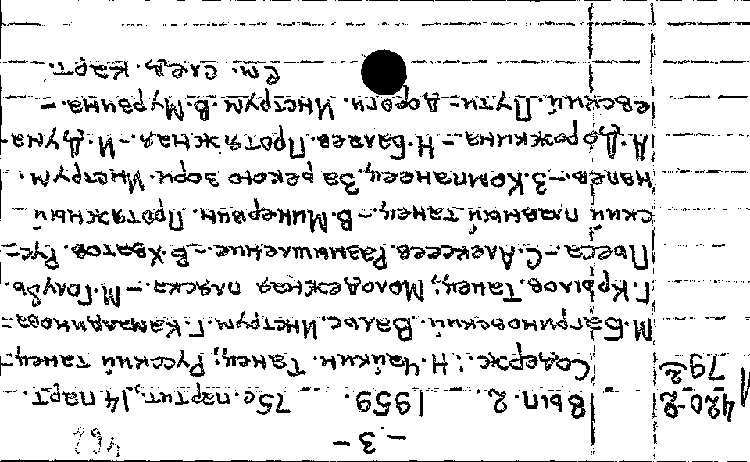 - 3 -
Вып. 2. 1959. 75с. партит., 14 парт.
420-2
79г
Содерж.: Н. Чайкин. Танец; Русский танец.-
М. Багриновский. Вальс. Инструм. Г. Камалдинова.-
Г. Крылов. Танец; Молодежная пляска. - М. Голубь.
Пьеса. - С. Алексеев. Размышление. - В. Хватов. Рус-
ский плавный танец. - В. Минервин. Протяжный
напев. - З. Компанеец. За рекою зори. Инструм.
А. Дорожкина. - Н. Баляев. Протяжная. - И. Дуна-
евский. Пути-дороги. Инструм. В. Мурзина. -
См. след. карт.